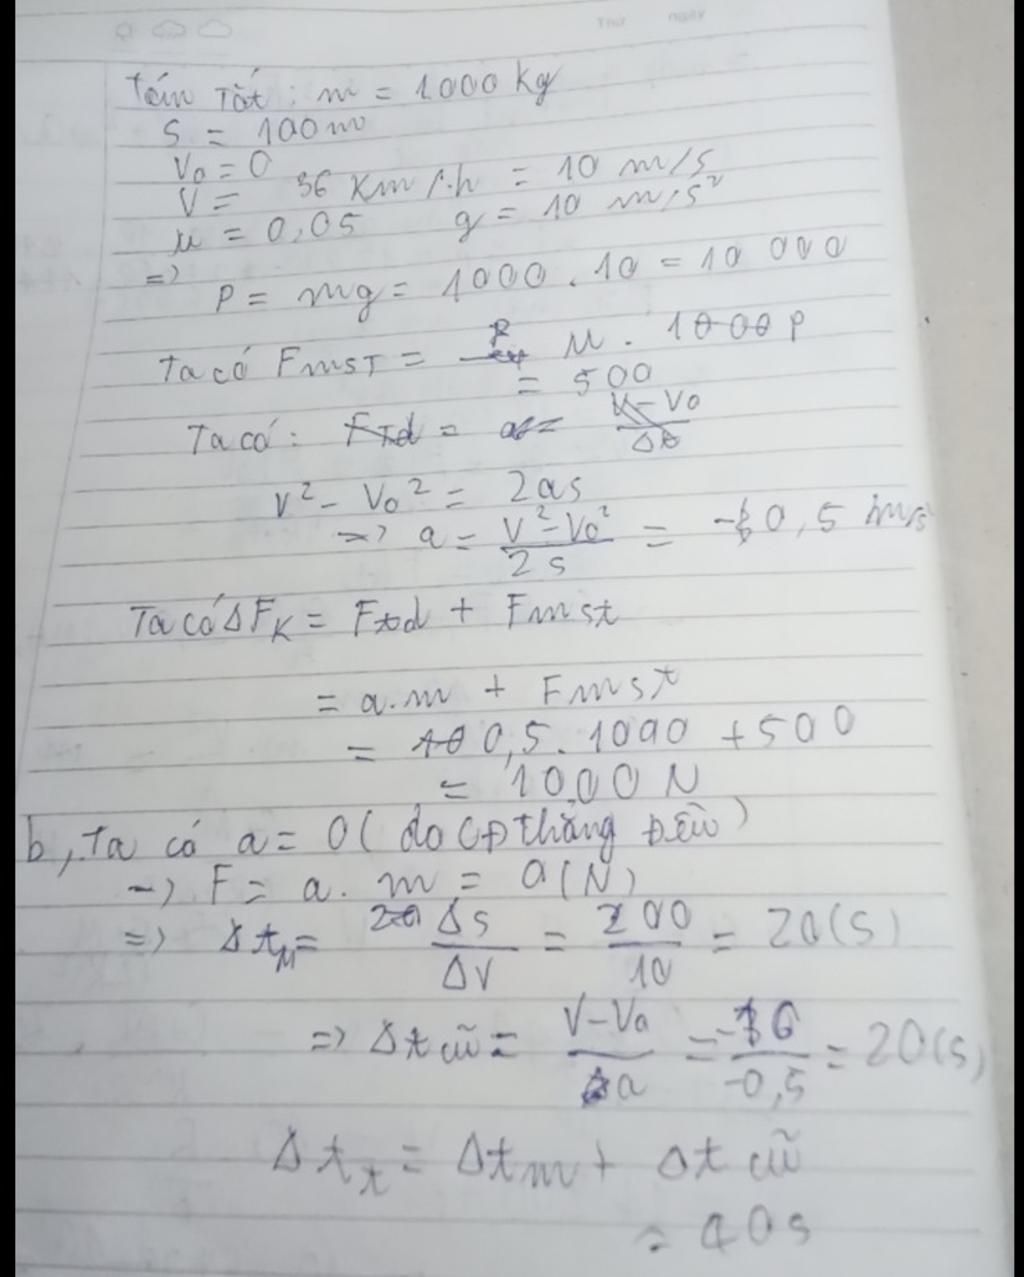 Thứ ngày
Tóm Tắt : m = 1000 kg
S = 100m
V₀ = 0
V = 36 Km/h = 10 m/s
μ = 0,05 g = 10 m/s²
=> P = mg = 1000 . 10 = 10 000
Ta có FmsT = μ . P
= 500
Ta có :
V² - V₀² = 2as
=> a = (V² - V₀²)/(2s) = 0,5 m/s²
Ta có FK = Ftd + Fmst
= a.m + Fmst
= 0,5. 1000 + 500
= 1000 N
b, Ta có a = 0 ( do CĐ thẳng Đều )
=> F = a. m = 0(N)
=> Δt = Δs/ΔV = 200/10 = 20(s)
=> Δt cũ = (V-V₀)/a = -10/-0,5 = 20(s)
Δt_t = Δtm + Δt cũ
= 40s